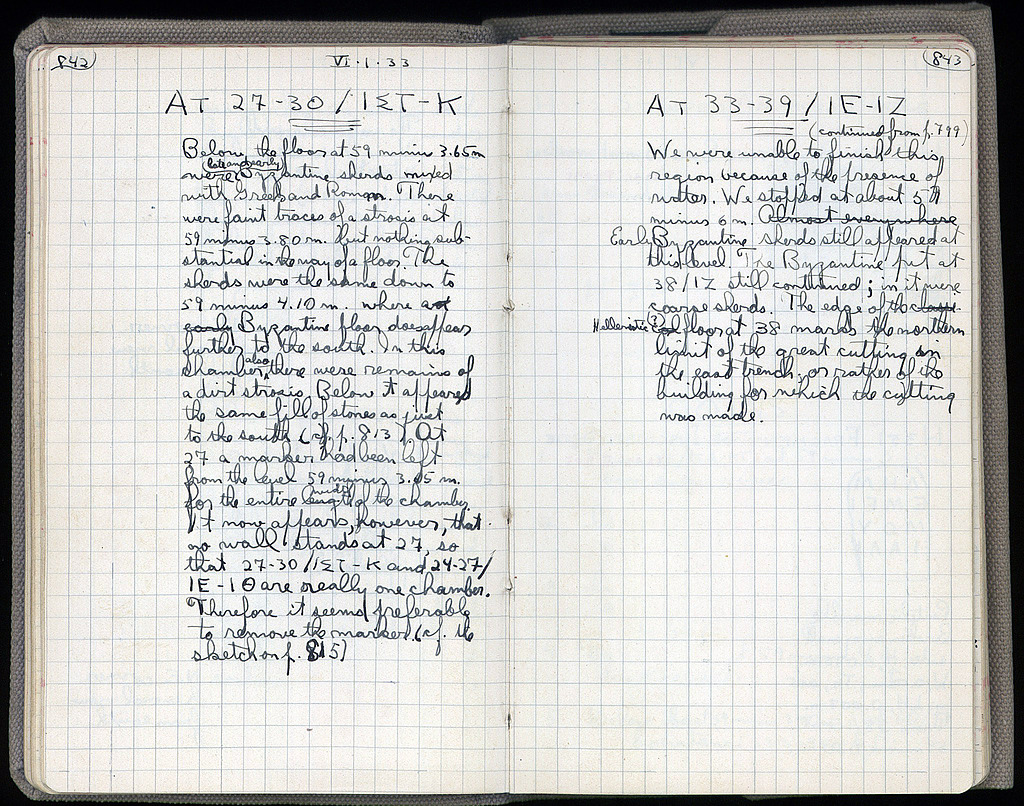 842
VI·1·33
AT 27-30/IΣT-K
Below the floor at 59 minus 3.65m
(late and early)
were Byzantine sherds mixed
with Greek and Roman. There
were faint traces of a strosis at
59 minus 3.80 m. but nothing sub-
stantial in the way of a floor. The
sherds were the same down to
59 minus 4.10 m. where
early Byzantine floor does appear
further to the south. In this
also
chamber there were remains of
a dirt strosis. Below it appeared
the same fill of stones as just
to the south (cf. p. 813). At
27 a marker had been left
from the level 59 minus 3.65 m.
width
for the entire length of the chamber.
It now appears, however, that
no wall stands at 27, so
that 27-30/IΣT-K and 24-27/
IE-IΘ are really one chamber.
Therefore it seems preferable
to remove the marker. (cf. the
sketch on p. 815)
843
AT 33-39/IE-IZ
(continued from p. 799)
We were unable to finish this
region because of the presence of
water. We stopped at about 59
minus 6 m. Almost everywhere
Early Byzantine sherds still appeared at
this level. The Byzantine pit at
38/IZ still continued; in it were
coarse sherds. The edge of the
Hellenistic(?) floor at 38 marks the northern
limit of the great cutting in
the east trench, or rather of the
building for which the cutting
was made.